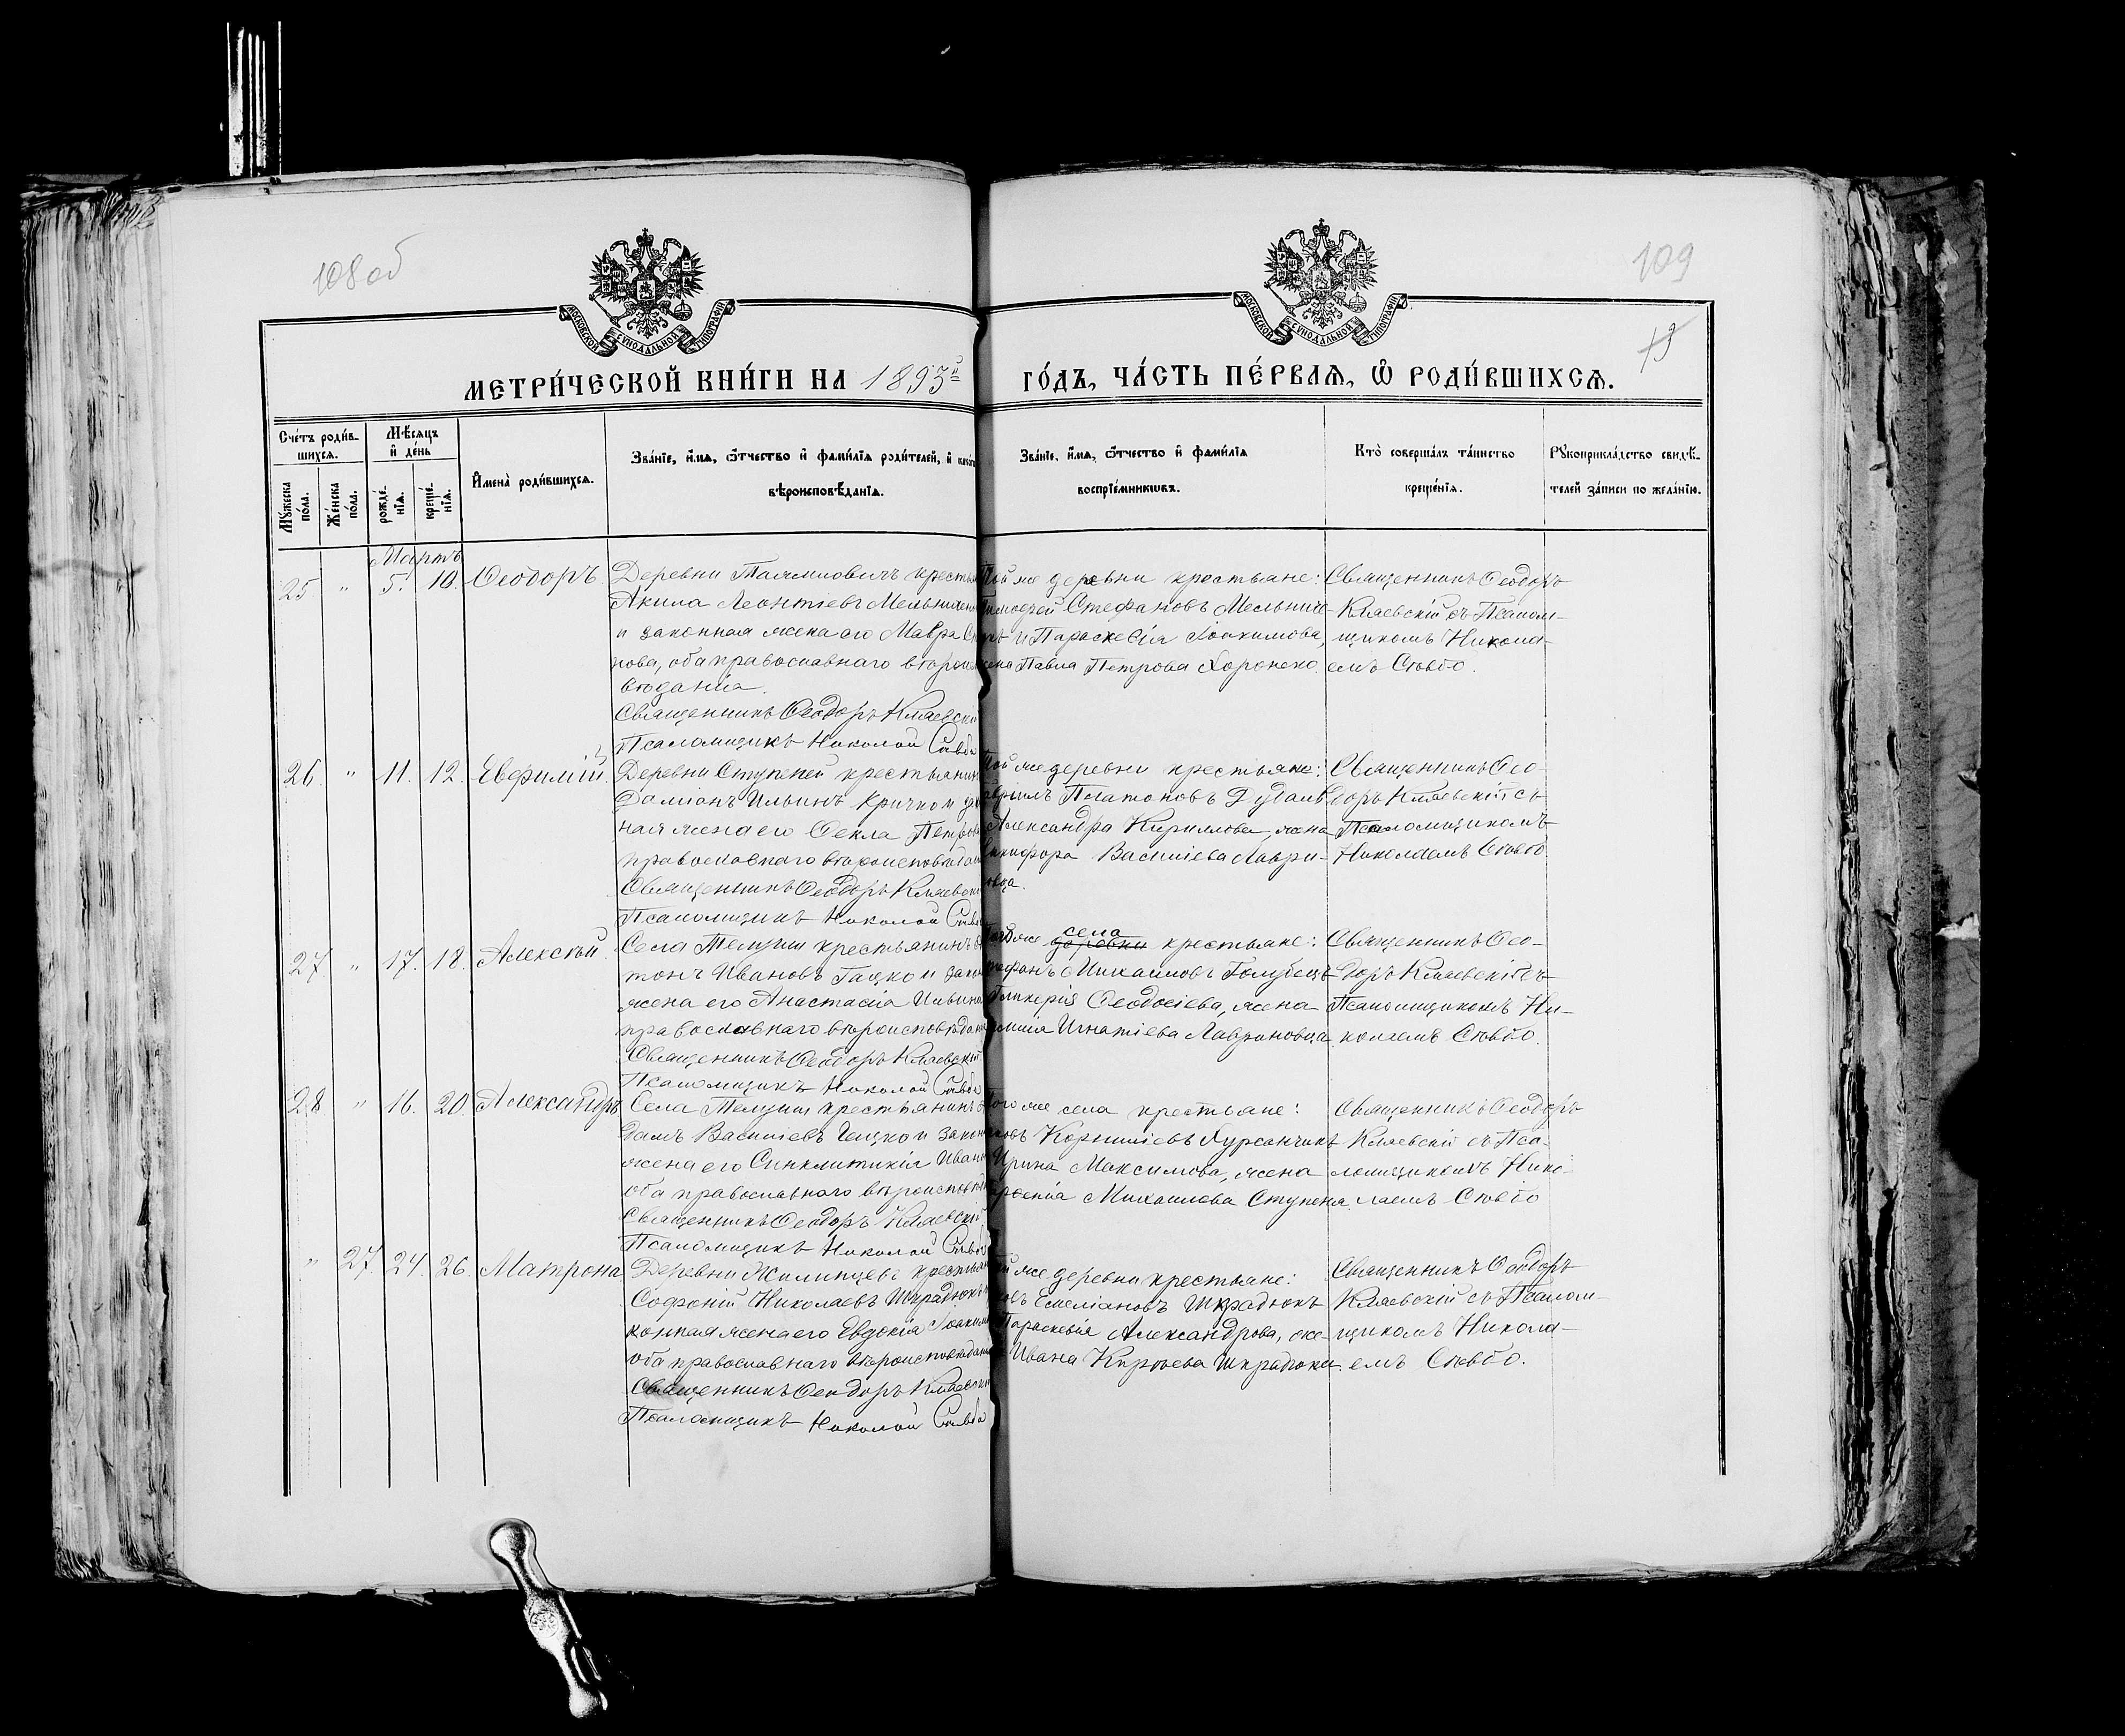 108 об
109
МОСКОВСКОЙ СѴНОДАЛЬНОЙ ТИПОГРАФІИ
МОСКОВСКОЙ СѴНОДАЛЬНОЙ ТИПОГРАФІИ
МЕТРИ́ЧЕСКОЙ КНИ́ГИ НА 1893й ГО́ДЪ, ЧА́СТЬ ПЕ́РВАѦ, Ѡ РОДИ́ВШИХСѦ.
Сче́тъ роди́в-
шихсѧ.
Мѣ́сѧцъ
и де́нь
Мꙋ́жеска по́ла.
Же́нска по́ла.
рожде́-
нїѧ.
креще́-
нїѧ.
И҆мена̀ роди́вшихсѧ.
Зва́нїе, и҆́мѧ, ѻ҆́тчество и҆ фами́лїѧ роди́телей, и҆ како́гѡ
вѣроисповѣ́данїѧ.
Зва́нїе, и҆́мѧ, ѻ҆́тчество и҆ фами́лїѧ
воспрїе́мникѡвъ.
Кто̀ соверша́лъ та́инство
креще́нїѧ.
Рꙋкоприкла́дство свидѣ́-
телей за́писи по жела́нїю.
Мартъ
25. " 5. 10. Ѳеодоръ
Деревни крестья
Акила Леонтіевъ Мельничен
и законная жена его Мавра
нова, оба православнаго вѣроис
вѣданія.
Священникъ Ѳеодоръ Кляевскій
Псаломщикъ Николай Сѣвбо
Той же деревни крестьяне:
Тимоѳей Стефановъ Мельниче-
и Параскевія Іоакимова,
жена Павла Петрова Хоронеко
Священникъ Ѳеодоръ
Кляевскій съ Псалом-
щикомъ Никола-
емъ Сѣвбо.
26. " 11. 12. Евфимій
Деревни Ступеней крестьянинъ
Даміанъ Ильинъ Кричко и за
ная жена его Ѳекла Петрова
православнаго вѣроисповѣдан
Священникъ Ѳеодоръ Кляевскій
Псаломщикъ Николай Сѣвбо
Той же деревни крестьяне:
Платоновъ
Александра Кириллова, жена
Никифора Васильева Лаври-
новца.
Священникъ Ѳео-
доръ Кляевскій съ
Псаломщикомъ
Николаемъ Сѣвбо.
27. " 17. 18. Алексѣй
Села Телуши крестьянинъ
тонъ Ивановъ Гацко и закон
жена его Анастасія Ильина
православнаго вѣроисповѣдан
Священникъ Ѳеодоръ Кляевскій
Псаломщикъ Николай Сѣвбо
же деревни села крестьяне:
Михаиловъ Голубецъ
Гликерія Ѳеодосіева, жена
Игнатіева Лавриновца
Священникъ Ѳео-
доръ Кляевскій съ
Псаломщикомъ Ни-
колаемъ Сѣвбо.
28 " 16. 20. Александръ
Села Телуши крестьянинъ
Васильевъ Гацко и закон
жена его Синклитикія Иван
оба православнаго вѣроисповѣд
Священникъ Ѳеодоръ Кляевскій
Псаломщикъ Николай Сѣвбо
Того же села крестьяне:
Корниліевъ Хурсанчикъ
Ирина Максимова, жена
Михаилова Ступеня.
Священникъ Ѳеодоръ
Кляевскій съ Пса-
ломщикомъ Нико-
лаемъ Сѣвбо
" 27. 24. 26. Матрона
Деревни Жилинцевъ крестьян
Софроній Николаевъ Шкрадюкъ
конная жена его Евдокія Іоаким
оба православнаго вѣроисповѣдан
Священникъ Ѳеодоръ Кляевскій
Псаломщикъ Николай Сѣвбо
же деревни крестьяне:
Емеліановъ Шкрадюкъ
Параскевія Александрова, же-
Ивана Киреева Шкрадюка.
Священникъ Ѳеодоръ
Кляевскій съ Псалом-
щикомъ Никола-
емъ Сѣвбо.